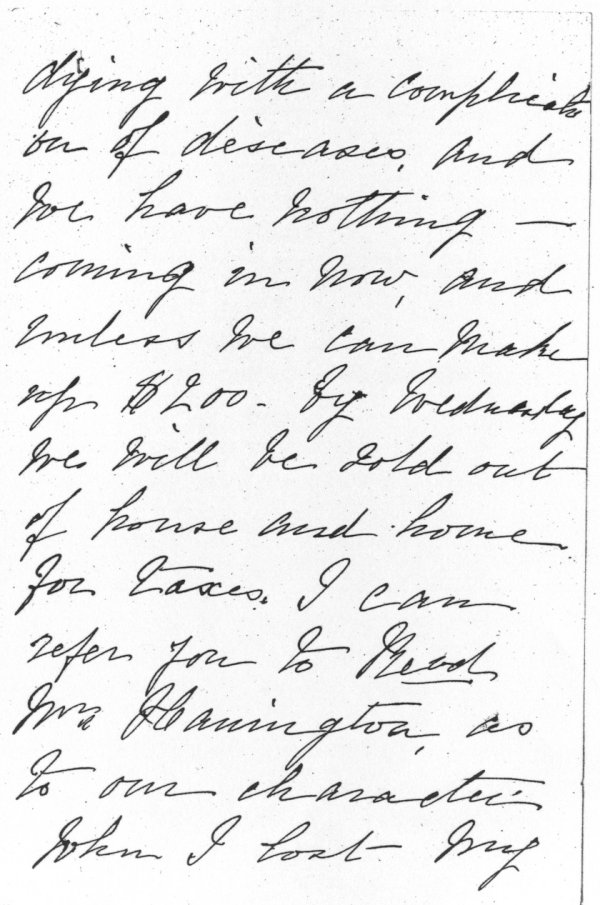 dying with a complicati
on of diseases, and
we have nothing —
coming in now, and
unless we can make
up $200. by Wednesday
we will be sold out
of house and home
for taxes. I can
refer you to Revd
Mr Hanington, as
to our character
When I lost my